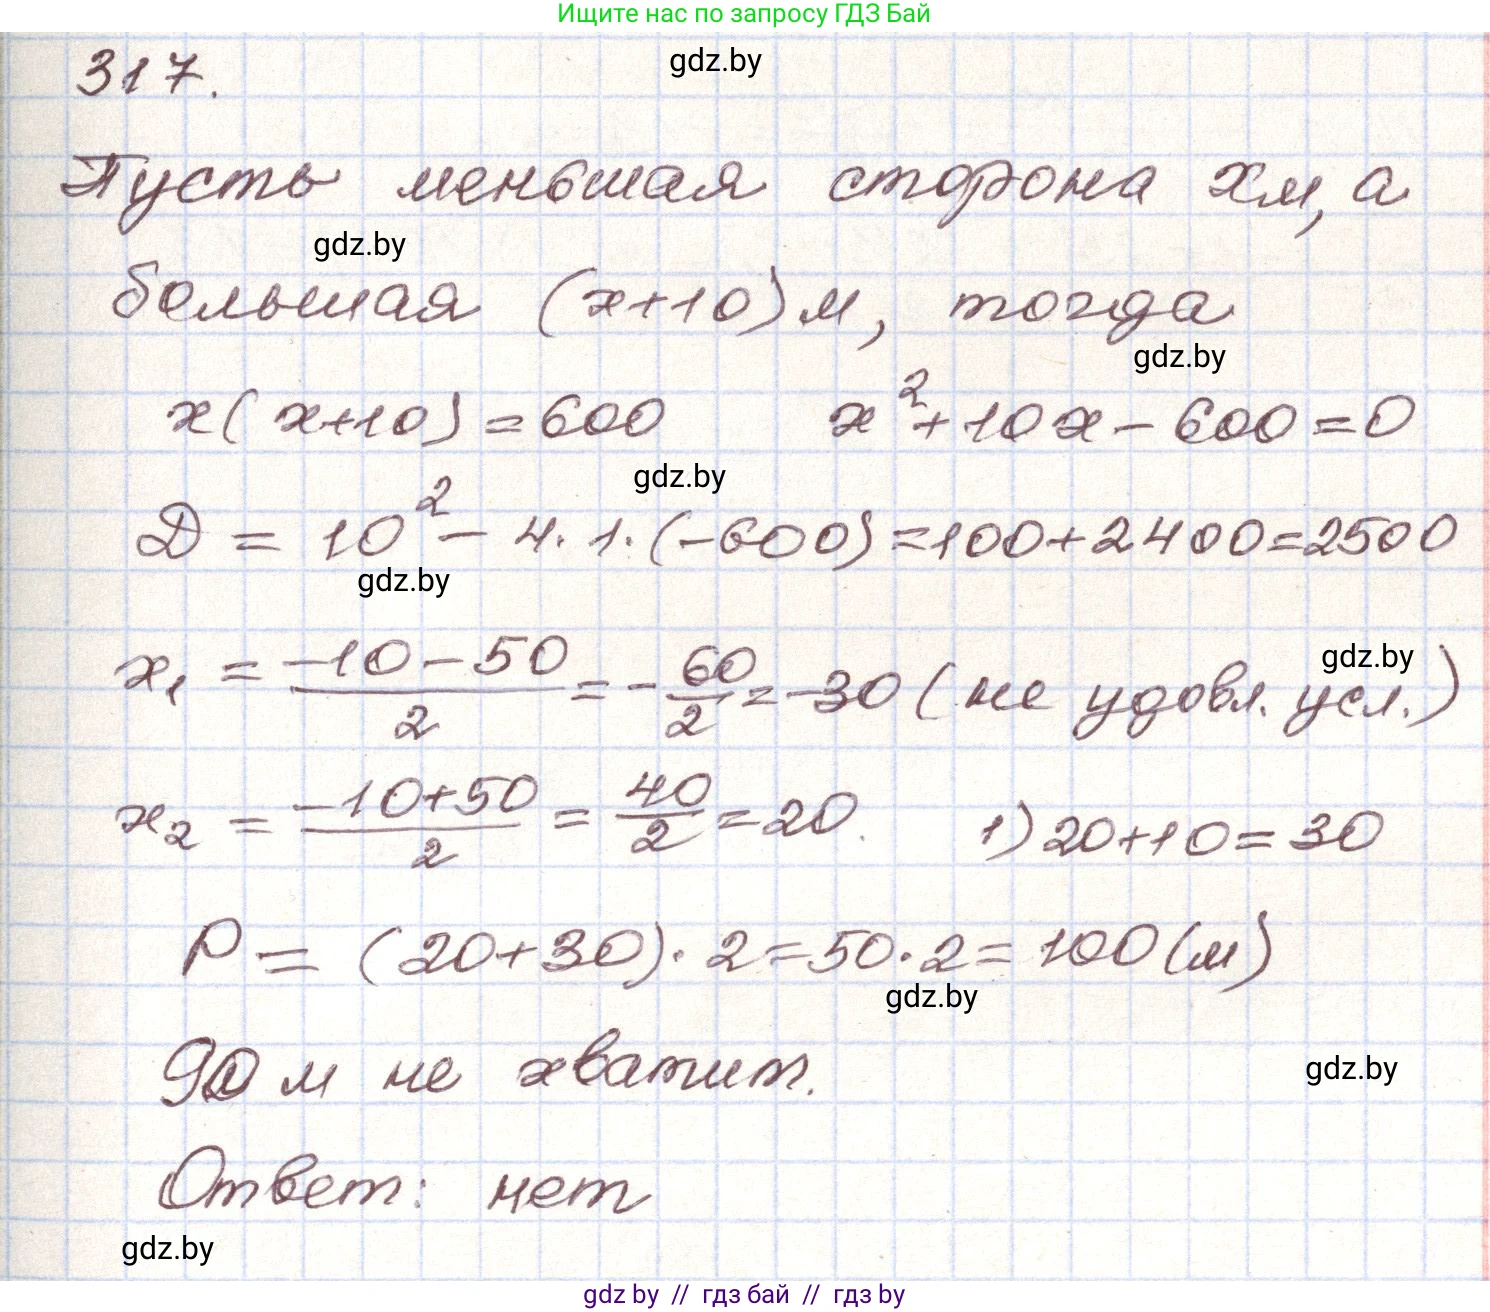 Ищите нас по запросу ГДЗ Бай
317.
gdz.by
Пусть меньшая сторона x м, а
gdz.by
большая (x+10) м, тогда
gdz.by
x(x+10)=600 x²+10x-600=0
gdz.by
D = 10² - 4·1·(-600)=100+2400=2500
gdz.by
x₁ = (-10-50)/2 = -60/2 = -30 (не удовл. усл.)
gdz.by
x₂ = (-10+50)/2 = 40/2 = 20. 1) 20+10=30
P = (20+30)·2=50·2=100 (м)
gdz.by
90 м не хватит.
gdz.by
Ответ: нет
gdz.by
gdz by // гдз бай // гдз by